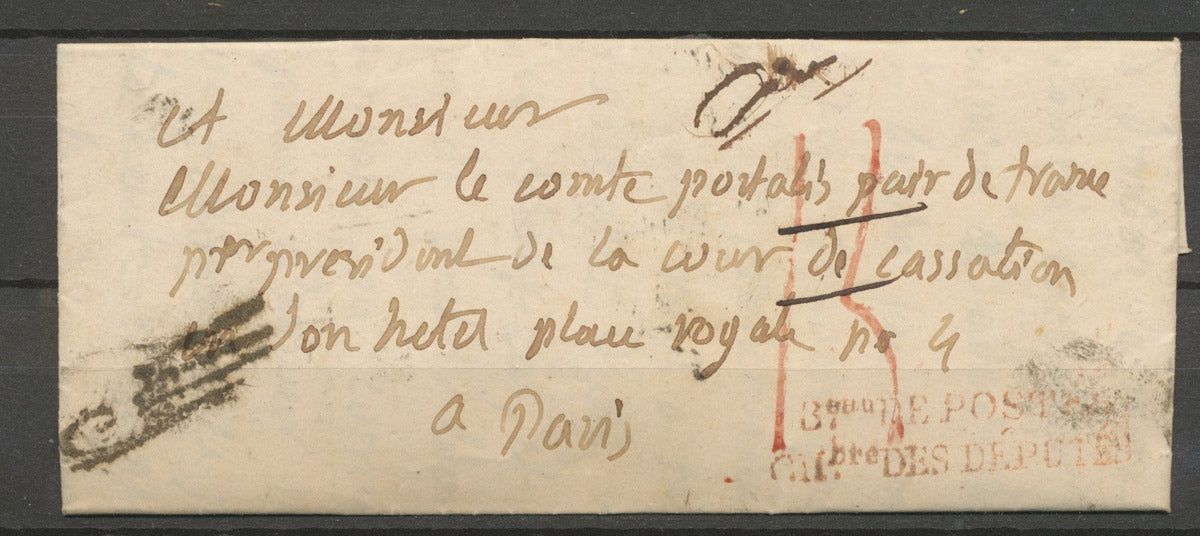 et Monsieur
Monsieur le comte portalis pair de france
per president de la cour de cassation
en son hotel place royale no 4
a Paris
Beau DE POSTES
CH.bre DES DÉPUTÉS